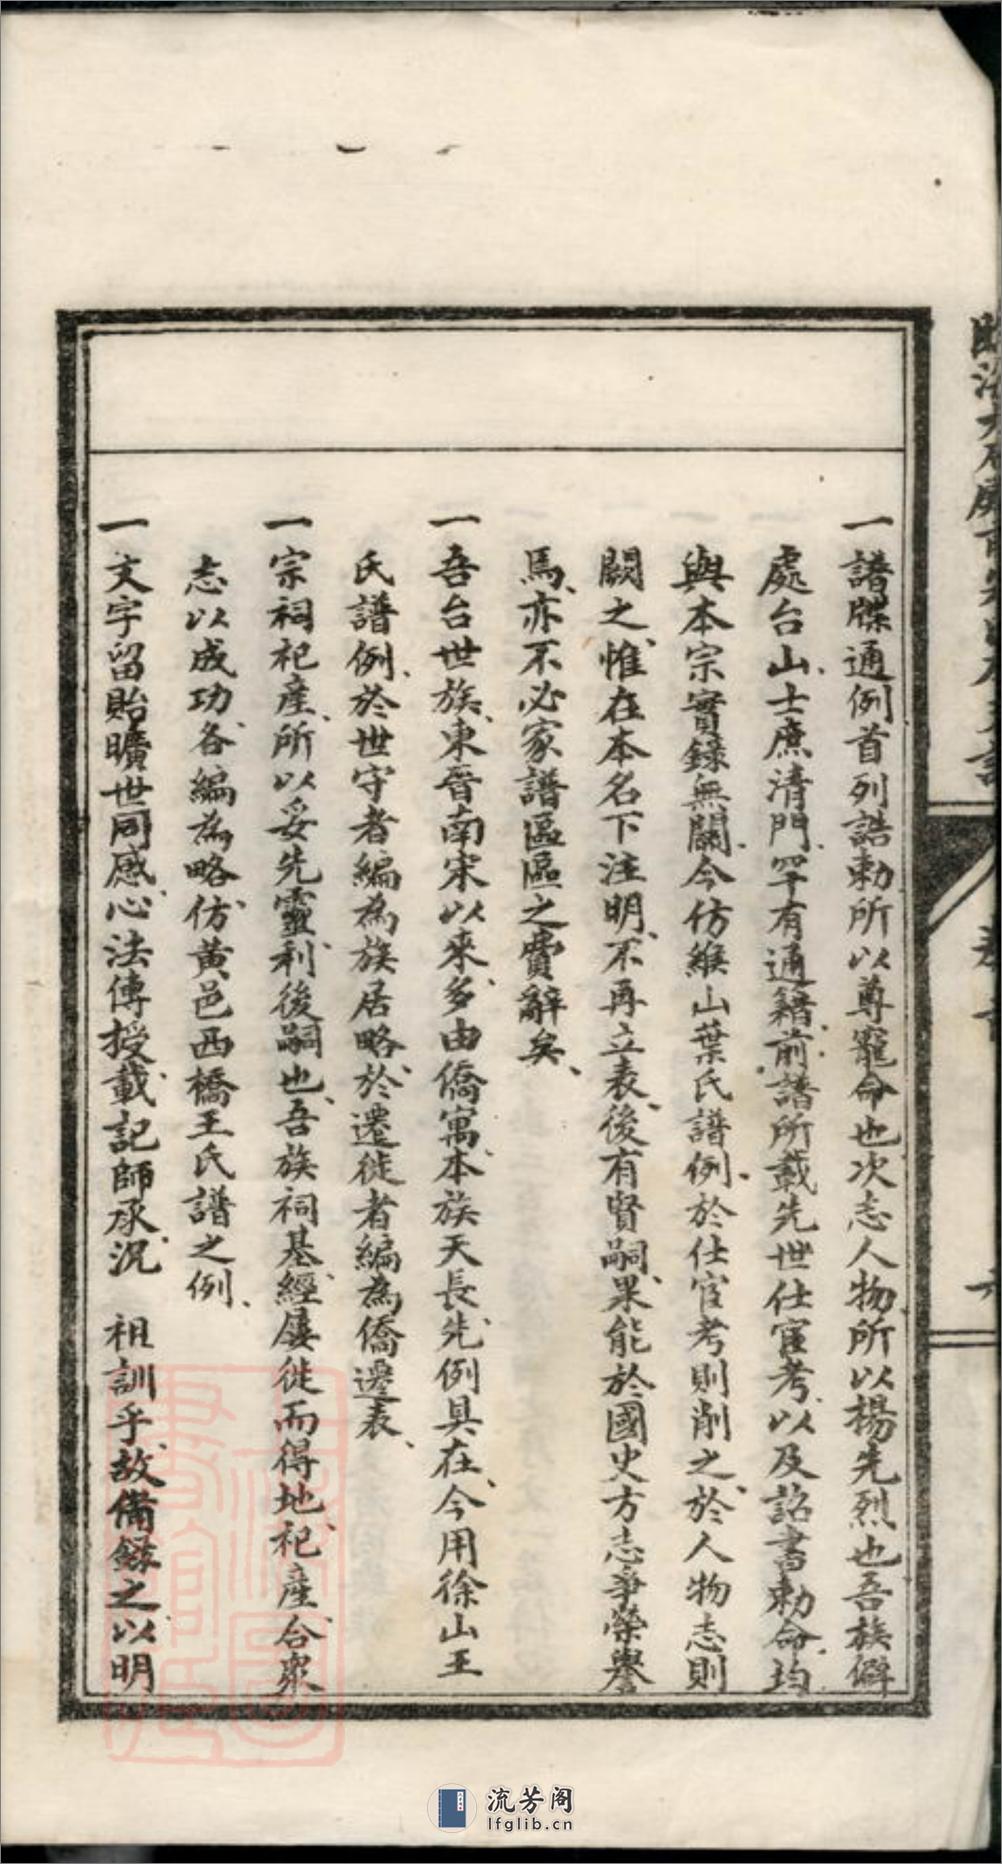 一譜牒通例首列誥勅所以尊寵命也次志人物所以楊先烈也吾族僻
處台山士庶清門罕有通籍前譜所載先世仕宦考以及詔書勅命均
與本宗實錄無關今仿緱山葉氏譜例於仕宦考則削之於人物志則
闕之惟在本名下注明不再立表後有賢嗣果能於國史方志爭榮譽
焉亦不必家譜區區之費辭矣
一吾台世族東晉南宋以來多由僑寓本族天長先例具在今用徐山王
氏譜例於世守者編為族居略於遷徙者編為僑遷表
一宗祠祀產所以妥先靈利後嗣也吾族祠基經屢徙而得地祀產合眾
志以成功各編為略仿黃邑西橋王氏譜之例
一文字留貽曠世同感心法傳授載記師承況 祖訓乎故備錄之以明
流芳阁
lfglib.cn